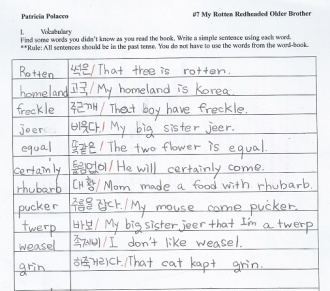 Patricia Polacco #7 My Rotten Redheaded Older Brother
I. Vocabulary
Find some words you didn't know as you read the book. Write a simple sentence using each word.
**Rule: All sentences should be in the past tense. You do not have to use the words from the word-book.
Rotten 썩은/That tree is rotten.
homeland 고국/My homeland is korea.
freckle 주근깨/That boy have freckle.
jeer 비웃다/My big sister jeer.
equal 똑같은/The two flower is equal.
certainly 틀림없이/He will certainly come.
rhubarb 대황/Mom made a food with rhubarb.
pucker 주름을 잡다./My mouse come pucker.
twerp 바보/My big sister jeer that I'm a twerp
weasel 족제비/I don't like weasel.
grin /That cat kapt grin.